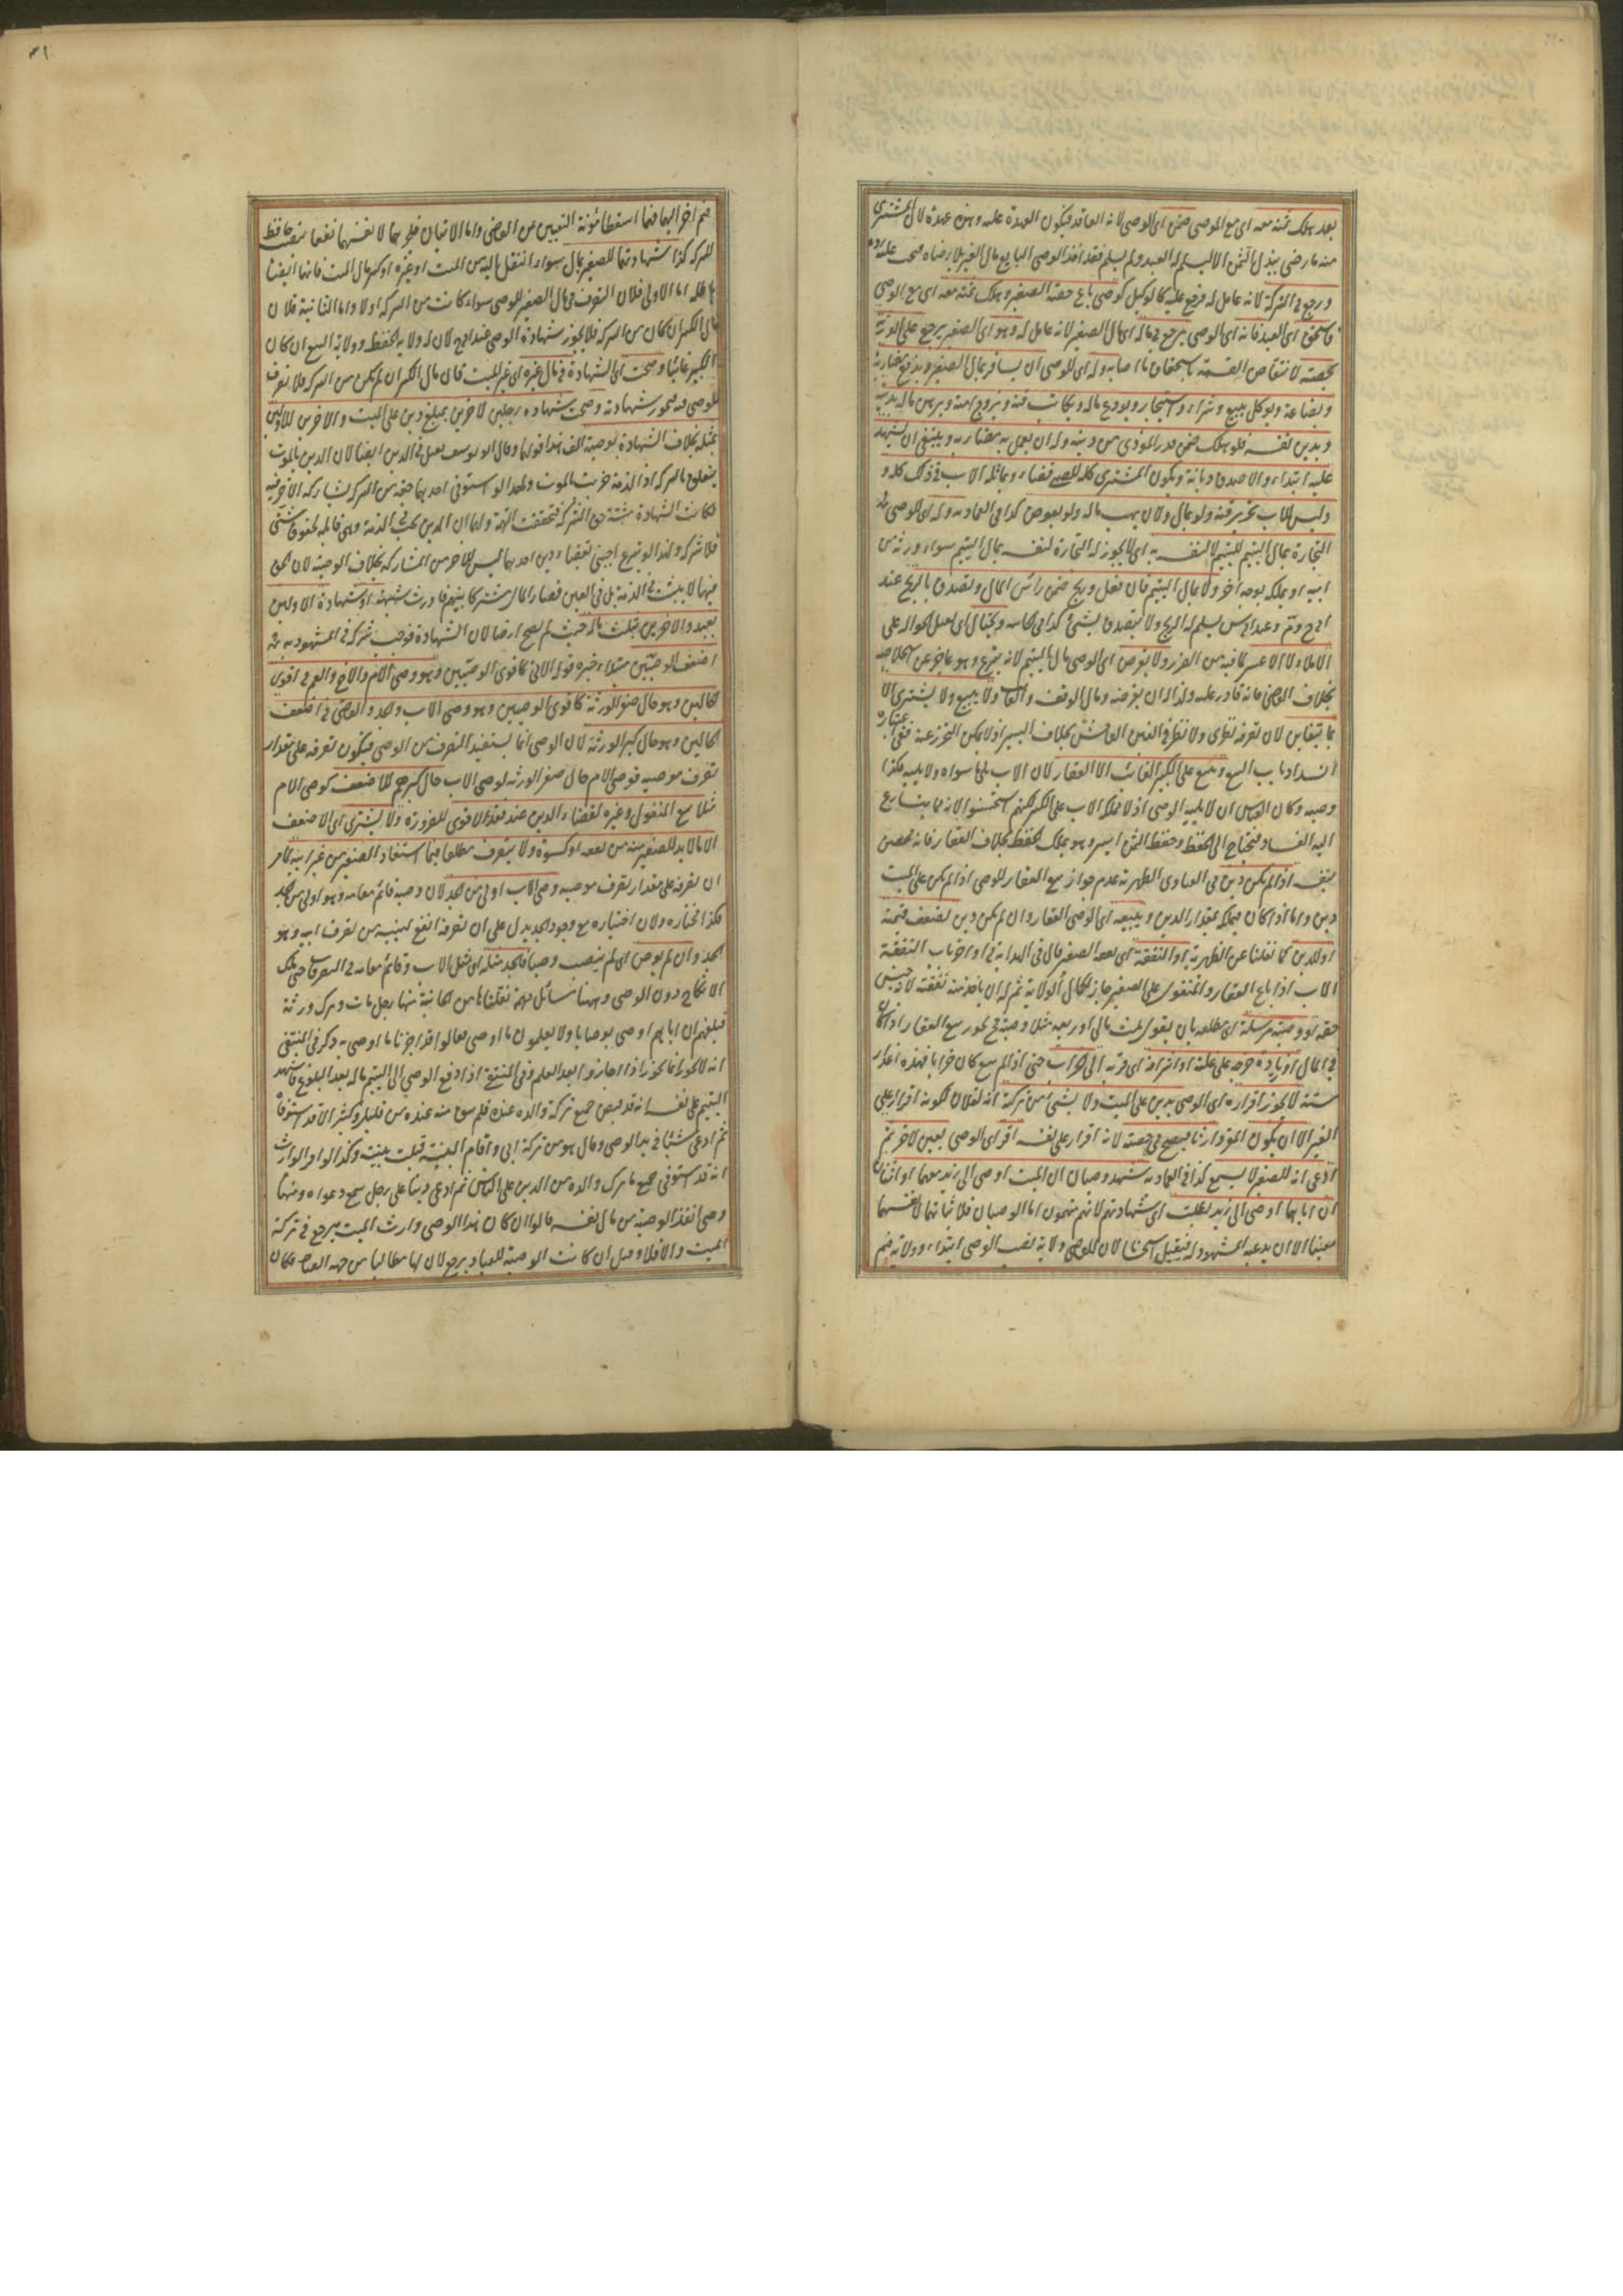 بعد هلك ثمنه معه اى مع الموصى ضمن اى الوصى لانه العاقد فيكون العهدة عليه وهذه عهدة لان المشترى
منه ما رضى ببذل الثمن الا ليسلم له العبد ولم يسلم فقد اخذ الوصى البايع مال الغير بلا رضاه فيجب عليه رده
ورجع فى التركة لانه عامل له فيرجع عليه كالوكيل كوصى باع حصة الصغير وهلك ثمنه معه اى مع الوصى
فاستحق اى العبد فانه اى الوصى يرجع فى ماله اى مال الصغير لانه عامل له وهو اى الصغير يرجع على الورثة
بحصته لانتقاض القسمة باستحقاق ما اصابه وله اى للوصى ان يسافر بمال الصغير ويدفع مضاربة
وبضاعة ويوكل ببيع وشراء واستيجار ويودع ماله ويكاتب قنه ويزوج امته ويرهن ماله بدينه
وبدين نفسه فلو هلك ضمن قدر المؤدى من دينه وله ان يعمل به مضاربة وينبغى ان يشهد
عليه ابتداء والا صدق ديانة ويكون المشترى كله للصبى قضاء وبماثله الاب فى ذلك كله و
وليس للاب تحرير قنه ولو بمال ولا ان يهب ماله ولو بعوض كذا فى العمادية وله اى للوصى
التجارة بمال اليتيم لليتيم لا لنفسه به اى لا يجوز له التجارة لنفسه بمال اليتيم سواء ورثه من
ابيه او يملكه بوجه اخر ولا بمال اليتيم فان فعل وربح ضمن رأس المال وتصدق بالربح عند
ابى ح وم وعند ابى س يسلم له الربح ولا يتصدق بشئ كذا فى الخانية ويحتال اى يقبل الحوالة على
الاملاء لا الاعسر لما فيه من الضرر ولا يقرض اى الوصى مال اليتيم لانه تبرع وهو عاجز عن استخلاصه
بخلاف القاضى فانه قادر عليه ولذا له ان يقرضه ومال الوقف والغائب ولا يبيع ولا يشترى الا
بما يتغابن لان تصرفه نظرى ولا نظر فى الغبن الفاحش بخلاف اليسير اذ لا يمكن التحرز عنه ففى اعتباره
انسداد باب البيع ويبيع على الكبير الغائب الا العقار لان الاب يلى ما سواه ولا يليه فكذا
وصيه وكان القياس ان لا يليه الوصى اذ لا يملكه الاب على الكبير لكنهم استحسنوا لانه مما يتسارع
اليه الفساد فيحتاج الى الحفظ وحفظ الثمن ايسر وهو يملك الحفظ بخلاف العقار فانه محصن
بنفسه اذا لم يكن دين فى الفتاوى الظهيرية عدم جواز بيع العقار للوصى اذا لم يكن على الميت
دين واما اذا كان فيملكه بقدر الدين ويبيعه اى الوصى العقار وان لم يكن دين لضعف قيمته
او لدين كما نقلنا عن الظهيرية او النفقة اى نفقة الصغير قال فى الهداية فى اواخر باب النفقة
الاب اذا باع العقار والمنقول على الصغير جاز لكمال الولاية ثم له ان ياخذ منه نفقته لانه جنس
حقه او وصية مرسلة اى مطلقة بان يقول ثلث مالى او ربعه مثلا وصية فح يجوز بيع العقار اذا كان
فى المال او زيادة خرجه على غلته او اشرافه اى قربه الى خراب حتى اذا لم يبع كان خرابا فهذه اعذار
ستة لا يجوز اقراره اى الوصى بدين على الميت ولا بشئ من تركته انه لفلان لكونه اقرارا على
الغير الا ان يكون المقر وارثا فيصح فى حصته لانه اقرار على نفسه اقر اى الوصى بعين لاخر ثم
ادعى انه للصغير لا يسمع كذا فى العمادية شهد وصيان ان الميت اوصى الى زيد معهما او اثنان
ان اباهما اوصى الى زيد بطلت اى شهادتهم لانهم متهمون اما الوصيان فلاثباتهما لانفسهما
معينا الا ان يدعيه المشهود له فيقبل استحسانا لان للقاضى ولاية نصب الوصى ابتداء وولاية ضم
ضم اخر اليهما فيما اسقطا مؤنة التعيين عن القاضى واما الابنان فلجرهما لانفسهما نفعا بنصب حافظ
للتركة كذا شهادتهما للصغير بمال سواء انتقل اليه من الميت او غيره او كبير بمال الميت فانها ايضا
باطلة اما الاولى فلان التصرف فى مال الصغير للوصى سواء كانت من التركة او لا واما الثانية فلان
مال الكبير ان كان من التركة فلا يجوز شهادة الوصى عند ابى ح لان له ولاية الحفظ وولاية البيع ان كان
الكبير غائبا وصحت اى الشهادة فى مال غيره اى غير الميت فان مال الكبير ان لم يكن من التركة فلا تصرف
للوصى فيه فيجوز شهادته وصحت شهادة رجلين لاخرين بمبلغ دين على الميت والاخرين للاولين
بمثله بخلاف الشهادة بوصية الف هذا قولهما وقال ابو يوسف يبطل فى الدين ايضا لان الدين بالموت
يتعلق بالتركة اذ الذمة خربت بالموت ولهذا لو استوفى احدهما حقه من التركة يشاركه الاخر فيه
فكانت الشهادة مثبتة حق الشركة فتحققت التهمة ولهما ان الدين يجب فى الذمة وهى قابلة لحقوق شتى
فلا شركة ولهذا لو تبرع اجنبى بقضاء دين احدهما ليس للاخر حق المشاركة بخلاف الوصية لان الحق
فيها لا يثبت فى الذمة بل فى العين فصار المال مشتركا بينهم فاورث شبهة او شهادة الاولين
بعبد والاخرين بثلث ماله حيث لم يصح ايضا لان الشهادة توجب شركة فى المشهود به
اضعف الوصيين مبتدأ خبره قوله الاتى كاقوى الوصيين وهو وصى الام والاخ والعم فى اقوى
الحالين وهو حال صغر الورثة كاقوى الوصيين وهو وصى الاب والجد والقاضى فى اضعف
الحالين وهو حال كبر الورثة لان الوصى انما يستفيد التصرف من الموصى فيكون تصرفه على مقدار
تصرف موصيه فوصى الام حال صغر الورثة كوصى الاب حال كبرهم للاضعف كوصى الام
مثلا بيع المنقول وغيره لقضاء الدين عند فقد الاقوى للضرورة ولا يشترى اى الاضعف
الا ما لا بد للصغير منه من نفقة او كسوة ولا يتصرف مطلقا فيما استفاد الصغير من غير ابيه لما مر
ان تصرفه على مقدار تصرف موصيه وصى الاب اولى من الجد لان وصيه قائم مقامه وهو اولى من الجد
فكذا مختاره ولان اختياره مع وجود الجد يدل على ان تصرفه انفع لبنيه من تصرف ابيه وهو
الجد وان لم يوص اى لم ينصب وصيا فالجد مثله اى مثل الاب وقائم مقامه فى التصرفات حتى يملك
الانكاح دون الوصى وههنا مسائل مهمة نقلناها من الخانية منها رجل مات وترك ورثة
فبلغهم ان اباهم اوصى بوصايا ولا يعلمون ما اوصى فقالوا قد اجزنا ما اوصى به ذكر فى المنتقى
انه لا يجوز انما يجوز اذا اجازوا بعد العلم وفى المنتقى اذا دفع الوصى الى اليتيم ماله بعد البلوغ فاشهد
اليتيم على نفسه انه قد قبض جميع تركة والده عنده فلم يبق منه عنده من قليل وكثير الا قد استوفاه
ثم ادعى شيئا فى يد الوصى وقال هو من تركة ابى واقام البينة قبلت بينته وكذا لو اقر الوارث
انه قد استوفى جميع ما ترك والده من الدين على الناس ثم ادعى دينا على رجل يسمع دعواه ومنها
وصى انفذ الوصية من مال نفسه قالوا ان كان هذا الوصى وارث الميت يرجع فى تركة
الميت والا فلا وقيل ان كانت الوصية للعباد يرجع لان لها مطالبا من جهة العباد فكان